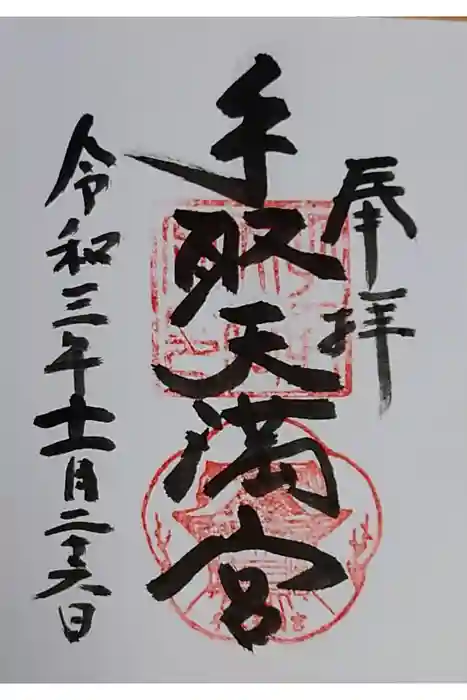 奉拝
手取天満宮
令和三年十一月二十六日